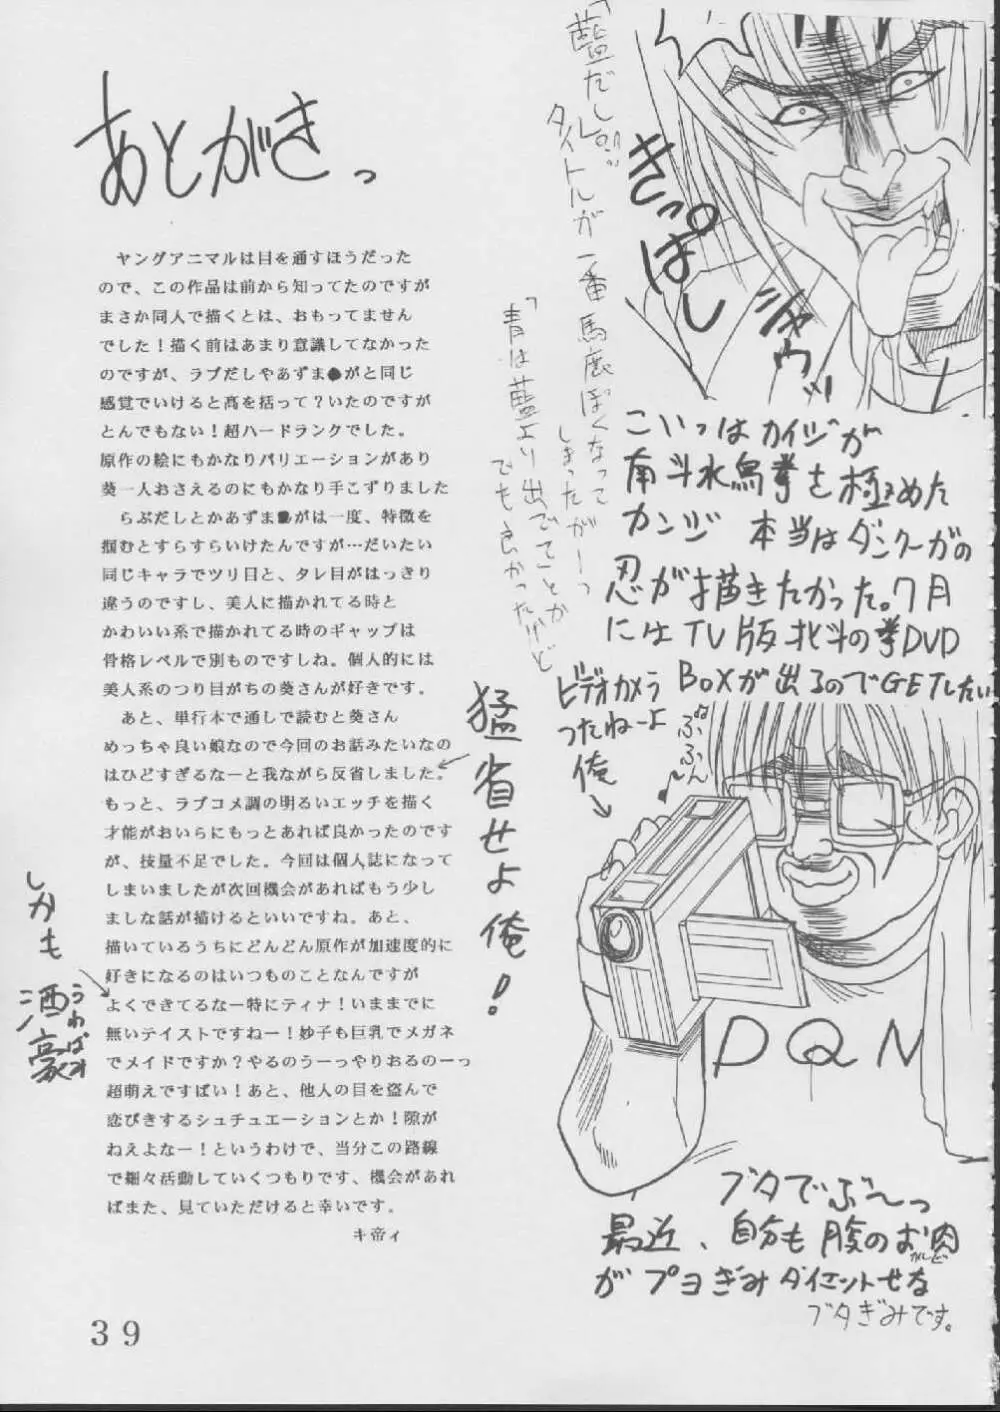 あとがきっ
ヤングアニマルは目を通すほうだった
ので、この作品は前から知ってたのですが
まさか同人で描くとは、おもってません
でした！描く前はあまり意識してなかった
のですが、ラブだしやあずま●がと同じ
感覚でいけると高を括って？いたのですが
とんでもない！超ハードランクでした。
原作の絵にもかなりバリエーションがあり
葵一人おさえるのにもかなり手こずりました
らぶだしとかあずま●がは一度、特徴を
掴むとすらすらいけたんですが…だいたい
同じキャラでツリ目と、タレ目がはっきり
違うのですし、美人に描かれてる時と
かわいい系で描かれてる時のギャップは
骨格レベルで別ものですしね。個人的には
美人系のつり目がちの葵さんが好きです。
あと、単行本で通しで読むと葵さん
めっちゃ良い娘なので今回のお話みたいなの
はひどすぎるなーと我ながら反省しました。
もっと、ラブコメ調の明るいエッチを描く
才能がおいらにもっとあれば良かったのです
が、技量不足でした。今回は個人誌になって
しまいましたが次回機会があればもう少し
ましな話が描けるといいですね。あと、
描いているうちにどんどん原作が加速度的に
好きになるのはいつものことなんですが
よくできてるなー特にティナ！いままでに
無いテイストですねー！妙子も巨乳でメガネ
でメイドですか？やるのうーっやりおるのーっ
超萌えですばい！あと、他人の目を盗んで
恋びきするシュチュエーションとか！隙が
ねえよなー！というわけで、当分この路線
で細々活動していくつもりです、機会があれ
ばまた、見ていただけると幸いです。
キ帝ィ
39
しかも
酒豪
うわばみ
猛省せよ俺！
「藍だし」!!
タイトルが一番馬鹿ぽくなって
しまったがーっ
「青は藍より出でてとか
でも良かったけど
きっぱし
シャウッ
こいつはカイジが
南斗水鳥拳を極めた
カンジ 本当はダンクーガの
忍が描きたかった。7月
にはTV版北斗の拳DVD
BOXが出るのでGETしたい
ビデオカメラ
つたねーよ
俺
ぬふふん
DQN
ブタでぶ〜っ
最近、自分も腹のお肉
がプヨぎみダイエットせな
ブタぎみです。